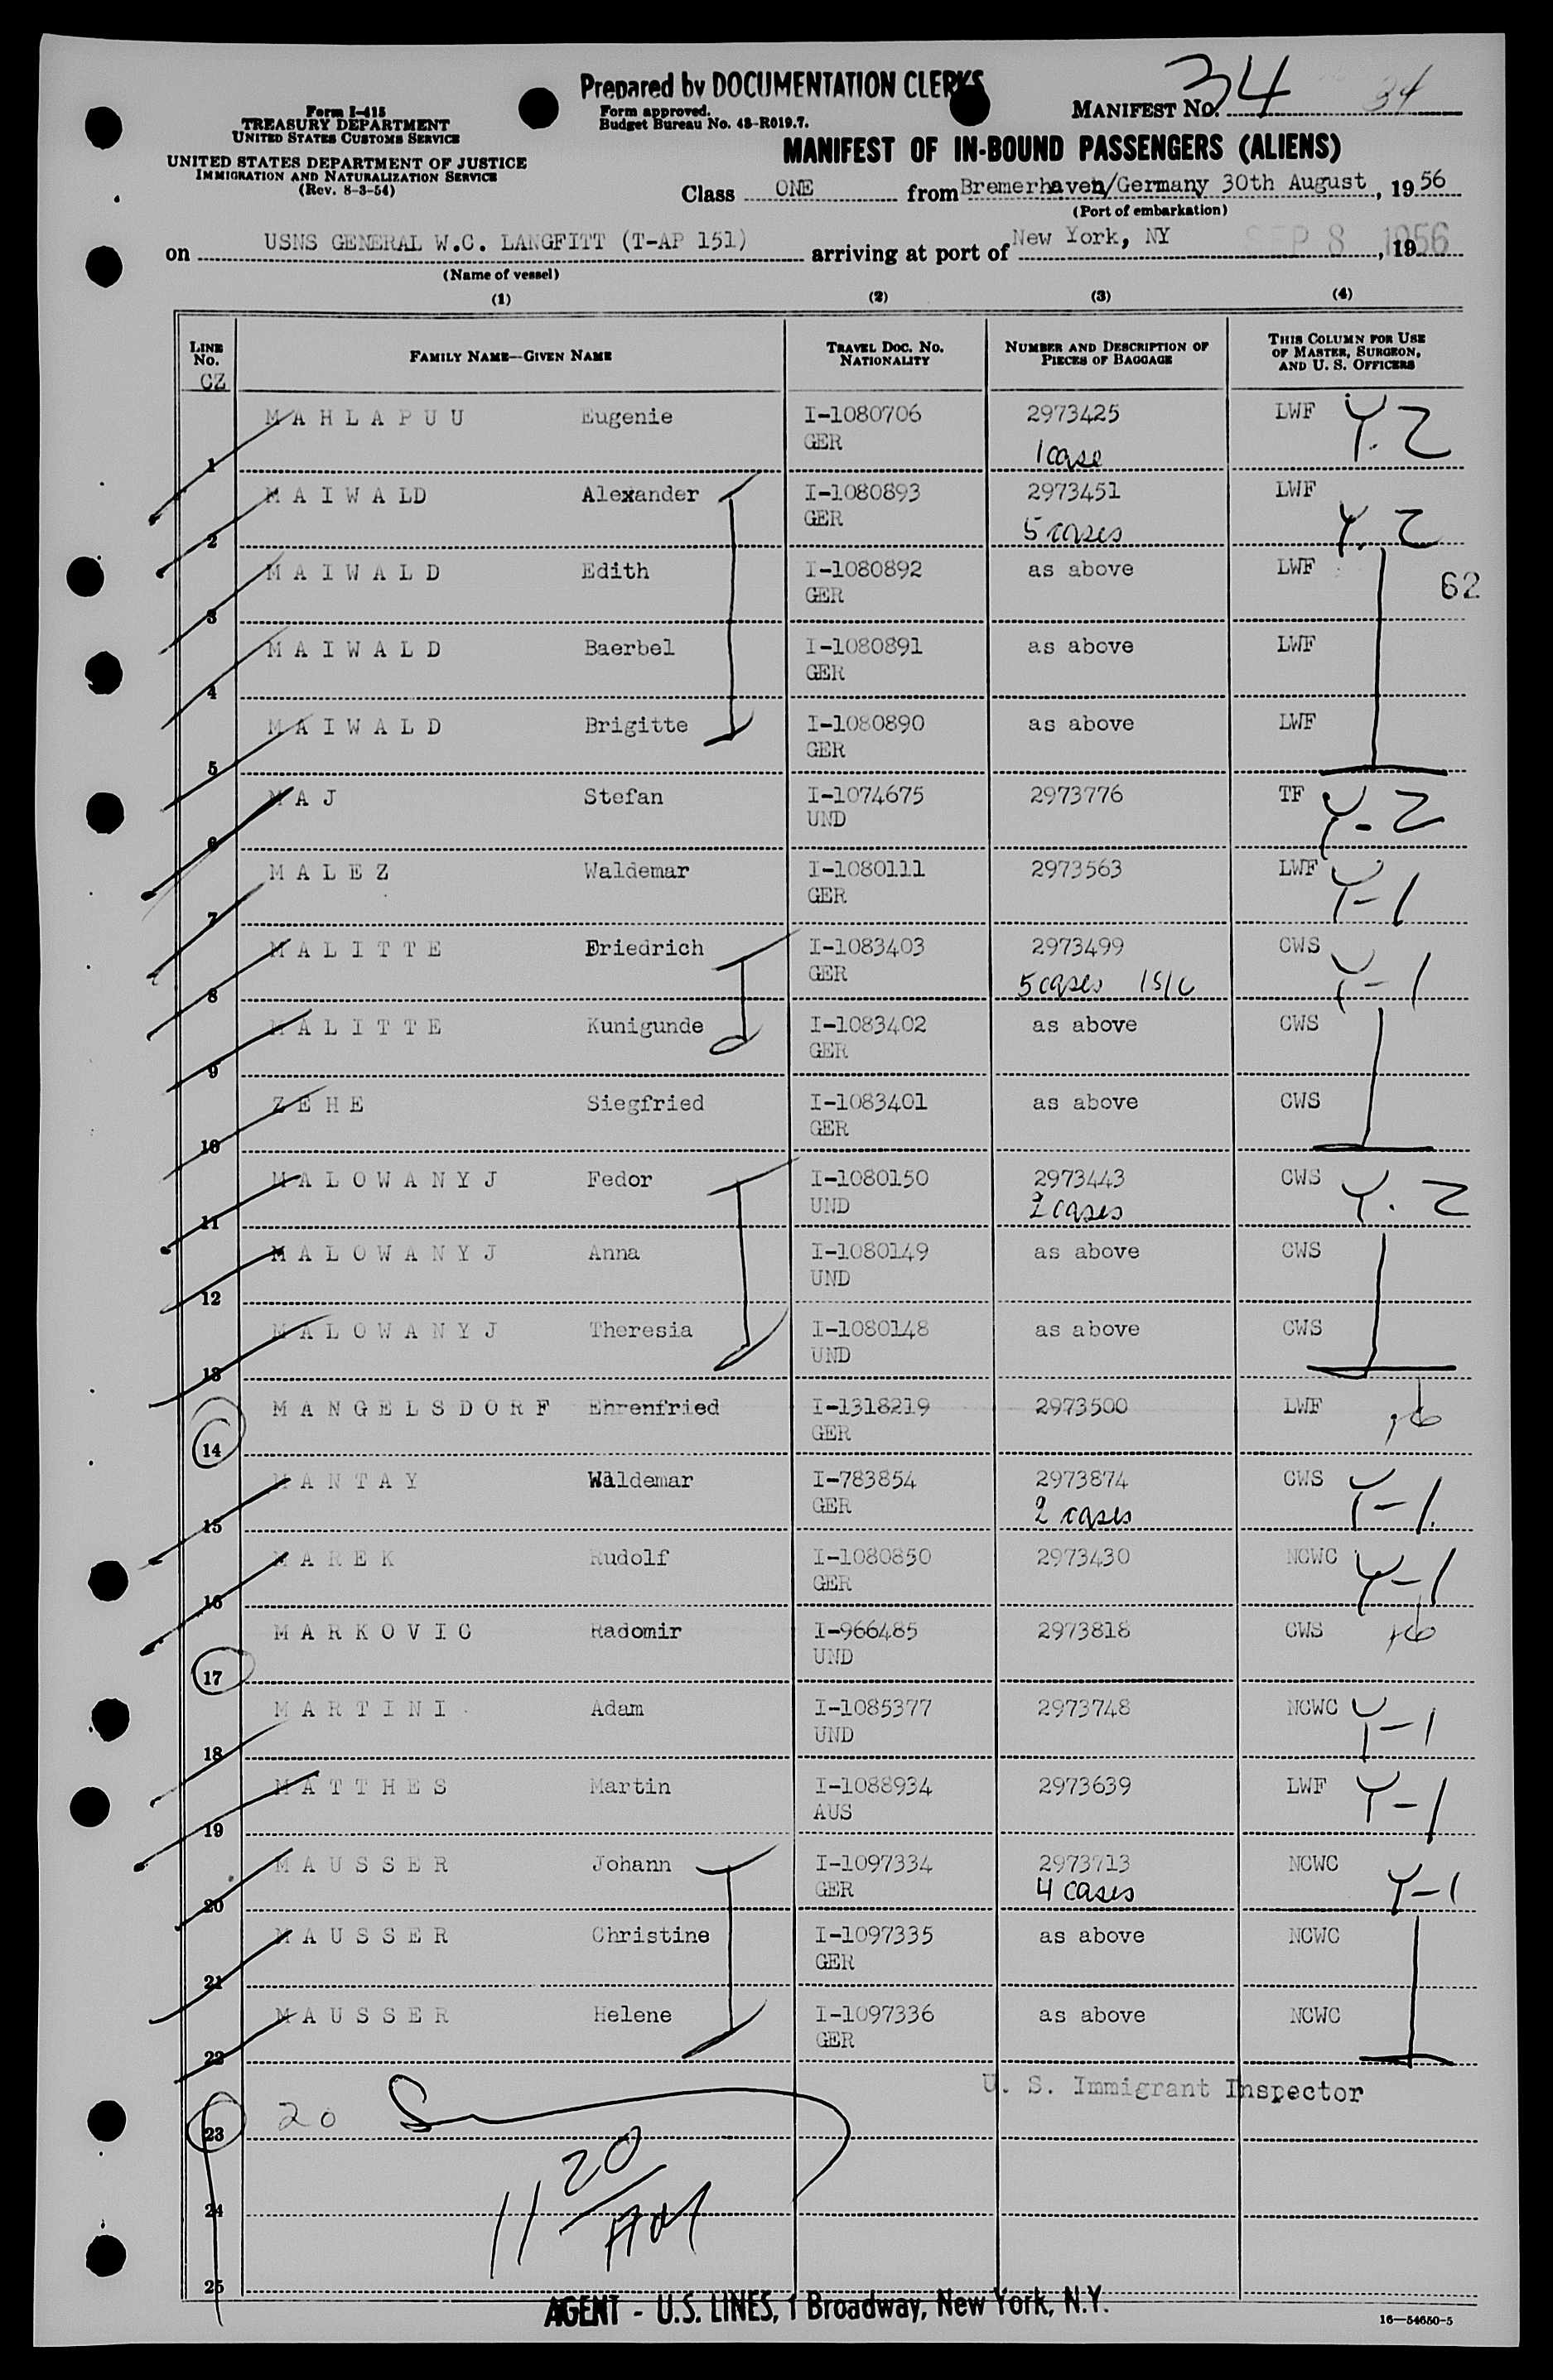 Prepared by DOCUMENTATION CLERKS
34 34
Form I-415
TREASURY DEPARTMENT
UNITED STATES CUSTOMS SERVICE
UNITED STATES DEPARTMENT OF JUSTICE
IMMIGRATION AND NATURALIZATION SERVICE
(Rev. 8-3-54)
Form approved.
Budget Bureau No. 43-R019.7.
MANIFEST NO.
MANIFEST OF IN-BOUND PASSENGERS (ALIENS)
Class ONE from Bremerhaven/Germany 30th August, 1956
(Port of embarkation)
on USNS GENERAL W.C. LANGFITT (T-AP 151) arriving at port of New York, NY SEP 8 1956, 19
(Name of vessel)
(1) (2) (3) (4)
LINE No. FAMILY NAME—GIVEN NAME TRAVEL DOC. NO. NATIONALITY NUMBER AND DESCRIPTION OF PIECES OF BAGGAGE THIS COLUMN FOR USE OF MASTER, SURGEON, AND U. S. OFFICERS
CZ
1 MAHLAPUU Eugenie I-1080706 2973425 LWF Y.2
GER 1 case
2 MAIWALD Alexander I-1080893 2973451 LWF
GER 5 cases Y.2
3 MAIWALD Edith I-1080892 as above LWF 62
GER
4 MAIWALD Baerbel I-1080891 as above LWF
GER
5 MAIWALD Brigitte I-1080890 as above LWF
GER
6 MAJ Stefan I-1074675 2973776 TF Y-2
UND
7 MALEZ Waldemar I-1080111 2973563 LWF Y-1
GER
8 MALITTE Friedrich I-1083403 2973499 CWS Y-1
GER 5 cases 1 S/C
9 MALITTE Kunigunde I-1083402 as above CWS
GER
10 ZEHE Siegfried I-1083401 as above CWS
GER
11 MALOWANYJ Fedor I-1080150 2973443 CWS Y.2
UND 2 cases
12 MALOWANYJ Anna I-1080149 as above CWS
UND
13 MALOWANYJ Theresia I-1080148 as above CWS
UND
14 MANGELSDORF Ehrenfried I-1318219 2973500 LWF
GER
15 MANTAY Waldemar I-783854 2973874 CWS Y-1
GER 2 cases
16 MAREK Rudolf I-1080850 2973430 NCWC Y-1
GER
17 MARKOVIC Radomir I-966485 2973818 CWS
UND
18 MARTINI Adam I-1085377 2973748 NCWC Y-1
UND
19 MATTHES Martin I-1088934 2973639 LWF Y-1
AUS
20 MAUSSER Johann I-1097334 2973713 NCWC Y-1
GER 4 cases
21 MAUSSER Christine I-1097335 as above NCWC
GER
22 MAUSSER Helene I-1097336 as above NCWC
GER
U. S. Immigrant Inspector
23 20
11 20 AM
24
25
AGENT - U.S. LINES, 1 Broadway, New York, N.Y.
16—54650-5